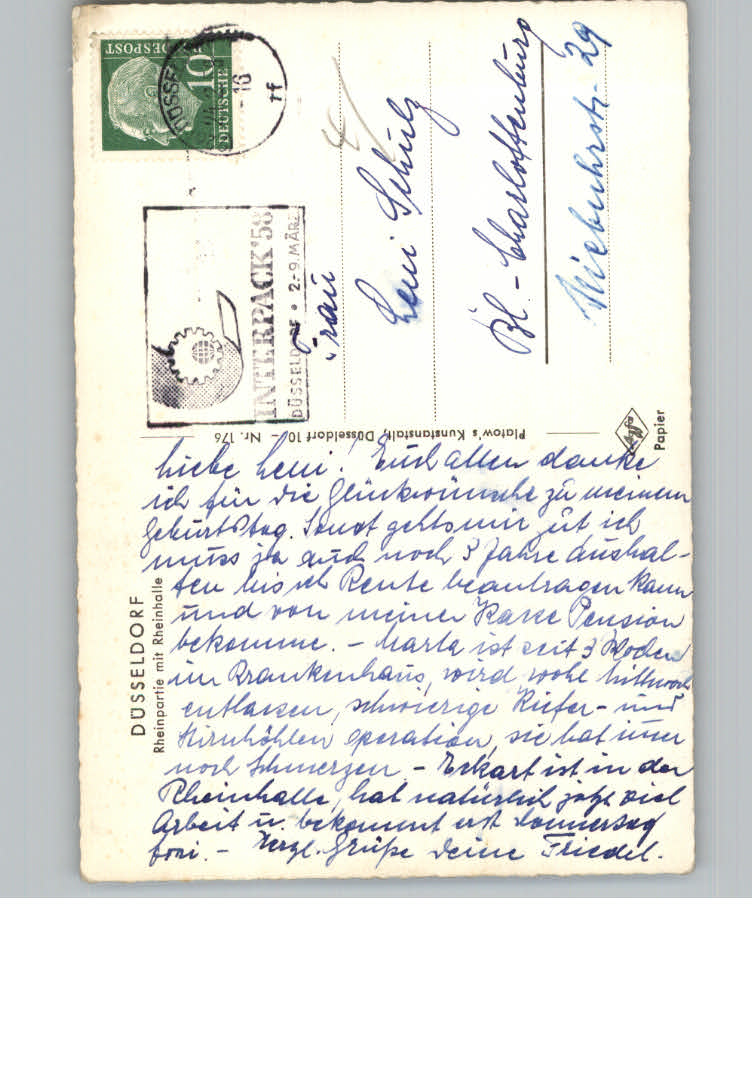 DÜSSELDORF
Rheinpartie mit Rheinhalle
Liebe Leni! Euch allen danke
ich für die Glückwünsche zu meinem
Geburtstag. Sonst gehts mir gut ich
muss ja auch noch 3 Jahre aushal-
ten bis ich Rente beantragen kann
und von meiner Kasse Pension
bekomme. - Marta ist seit 3 Wochen
im Krankenhaus, wird wohl Mittwoch
entlassen, schwierige Kiefer- und
Stirnhöhlen operation, sie hat immer
noch Schmerzen. - Eckart ist in der
Rheinhalle, hat natürlich jetzt viel
Arbeit u. bekommt erst Donnerstag
frei. - Herzl. Grüße Deine Friedel.
Platow's Kunstanstalt, Düsseldorf 10 - Nr. 176
Agfa
Papier
DEUTSCHE
BUNDESPOST
10
DÜSSE
- 16
rf
INTERPACK '58
DÜSSELDORF • 2.-9. MÄRZ
Frau
Leni Schulz
Bl. - Charlottenburg
Niebuhrstr. 29